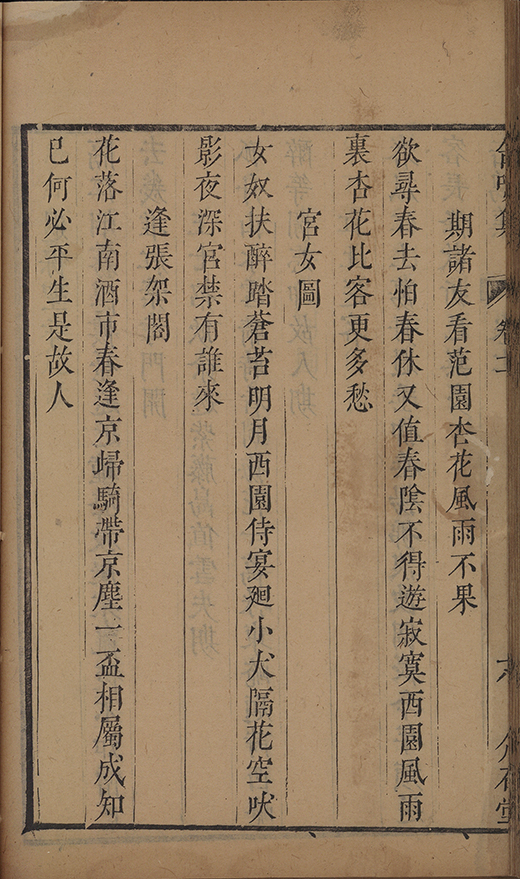 集
卷二
六
介石堂
期諸友看范園杏花風雨不果
欲尋春去怕春休又值春陰不得遊寂寞西園風雨
裏杏花比客更多愁
宮女圖
女奴扶醉踏蒼苔明月西園侍宴廻小犬隔花空吠
影夜深宮禁有誰來
逢張架閣
花落江南酒市春逢京歸騎帶京塵一盃相屬成知
已何必平生是故人